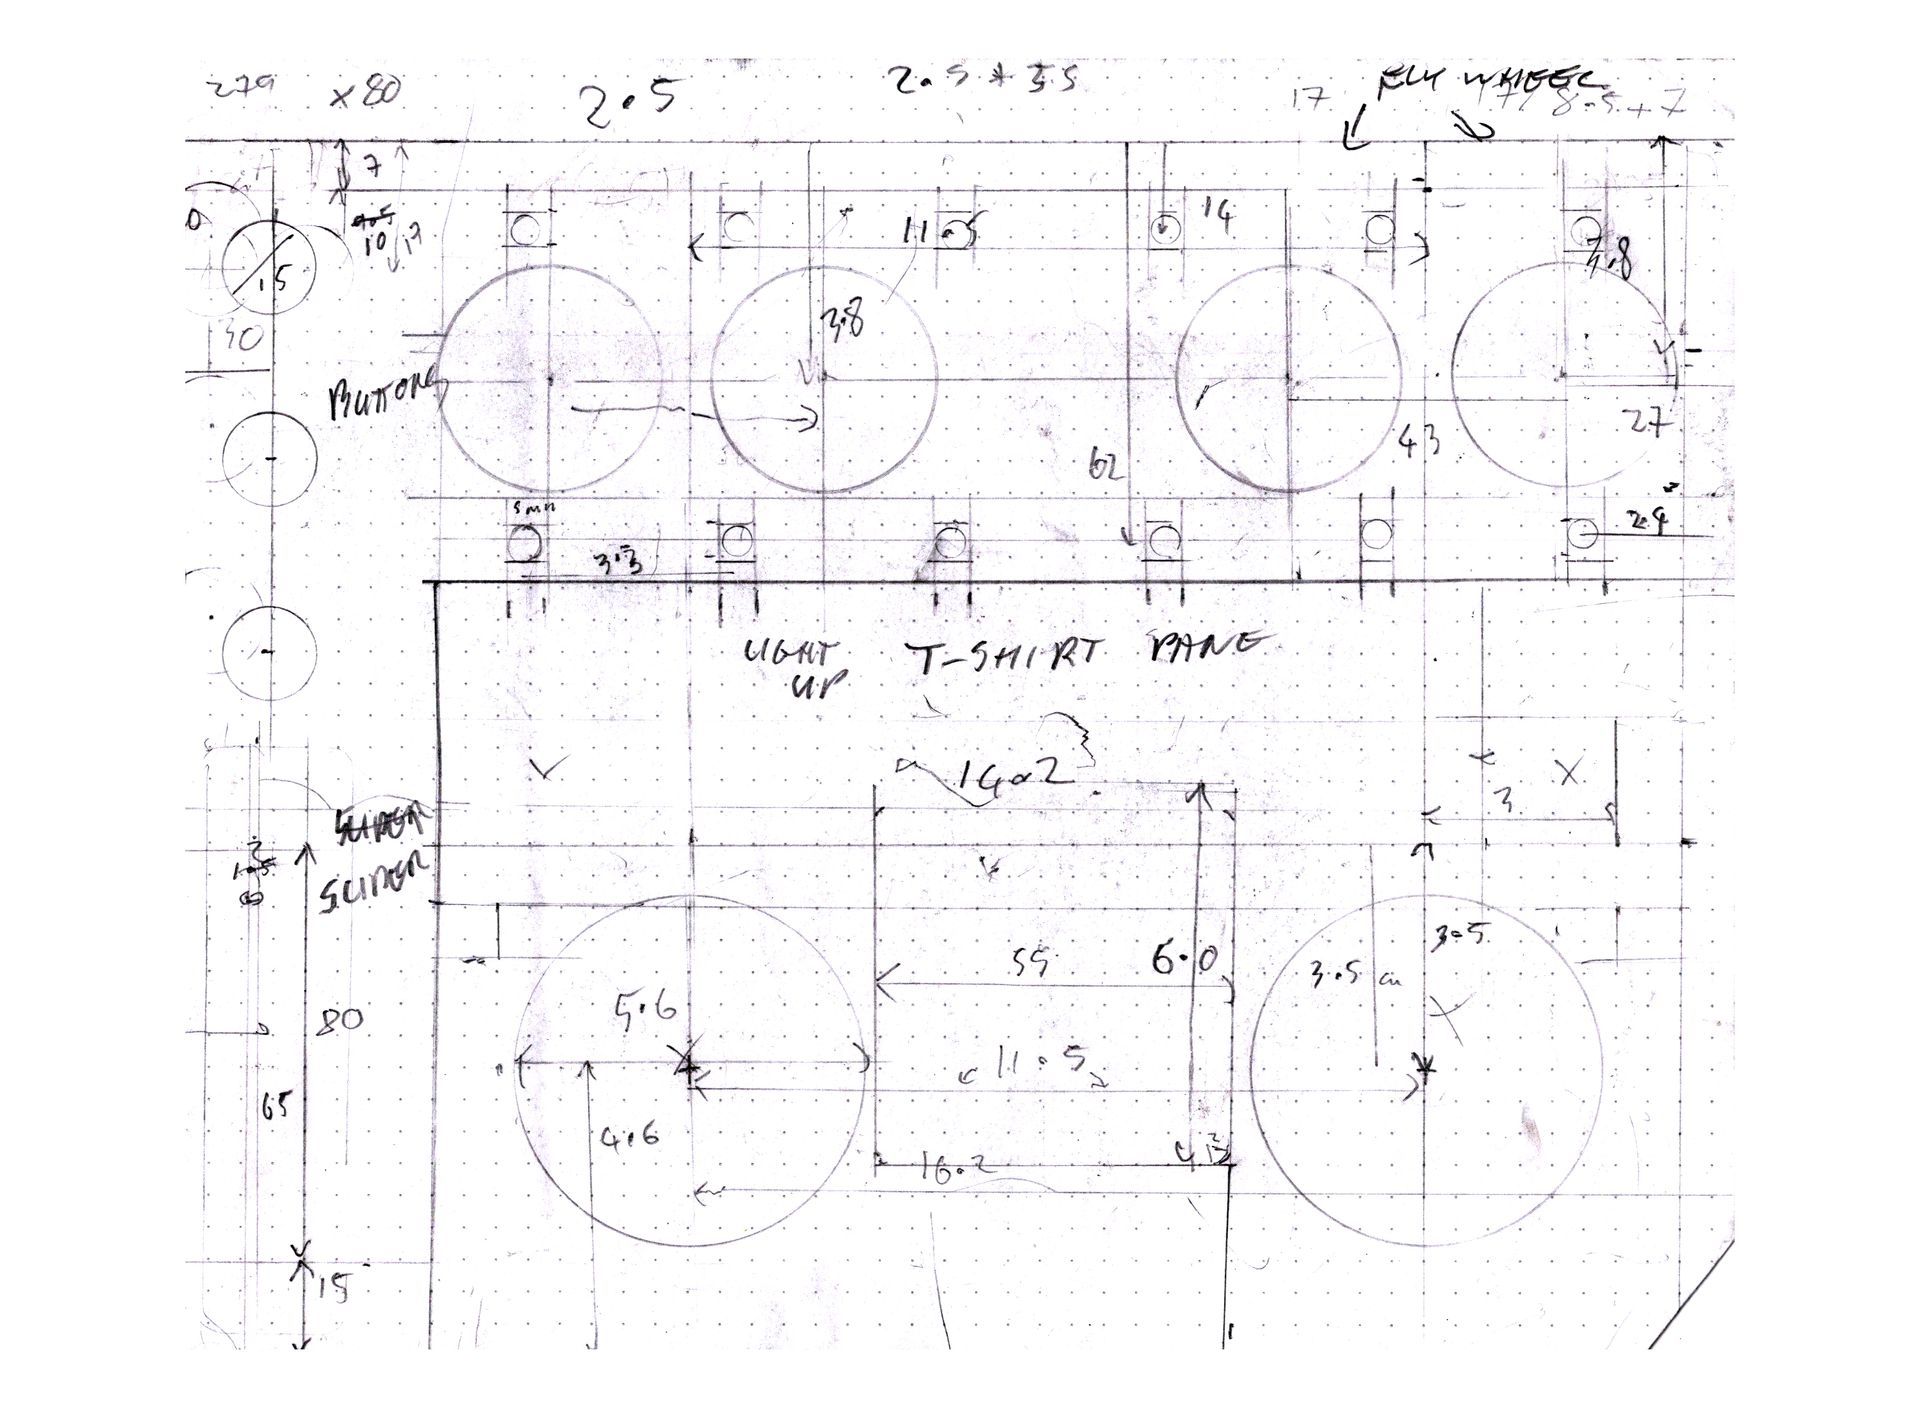 279
x 80
2.5
2.5 * 35
FLYWHEEL
17
8.5 + 7
7
10
17
11.5
14
3.8
3.8
.15
30
BUTTONS
43
27
62
5mm
3.3
2.4
LIGHT UP T-SHIRT PANE
14.2
SLIDER
3
3.5
55
6.0
3.5 cm
5.6
80
11.5
65
4.6
16.2
15